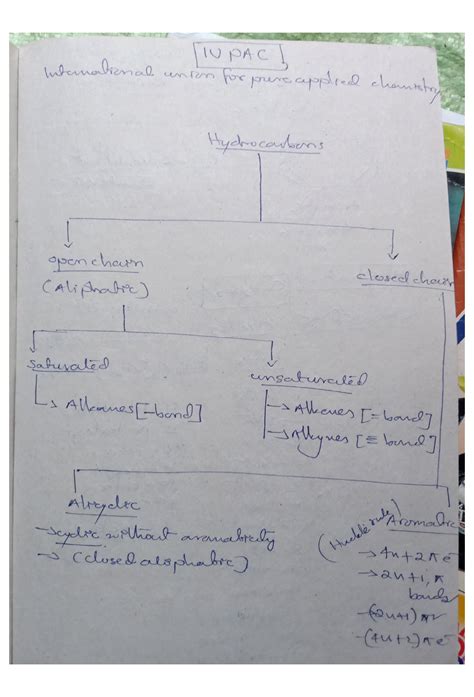 IUPAC,
International union for pure applied chemistry
Hydrocarbons
open chain
(Aliphatic)
closed chain
saturated
→ Alkanes [–bond]
unsaturated
→ Alkenes [= bond]
→ Alkynes [≡ bond]
Alicyclic
→ cyclic without aromaticity
→ (closed aliphatic)
Aromatic
(Huckle rule)
→ 4n+2 π e⁻
→ 2n+1, π
bonds
-(2n+1) π
-(4n+2) π e⁻